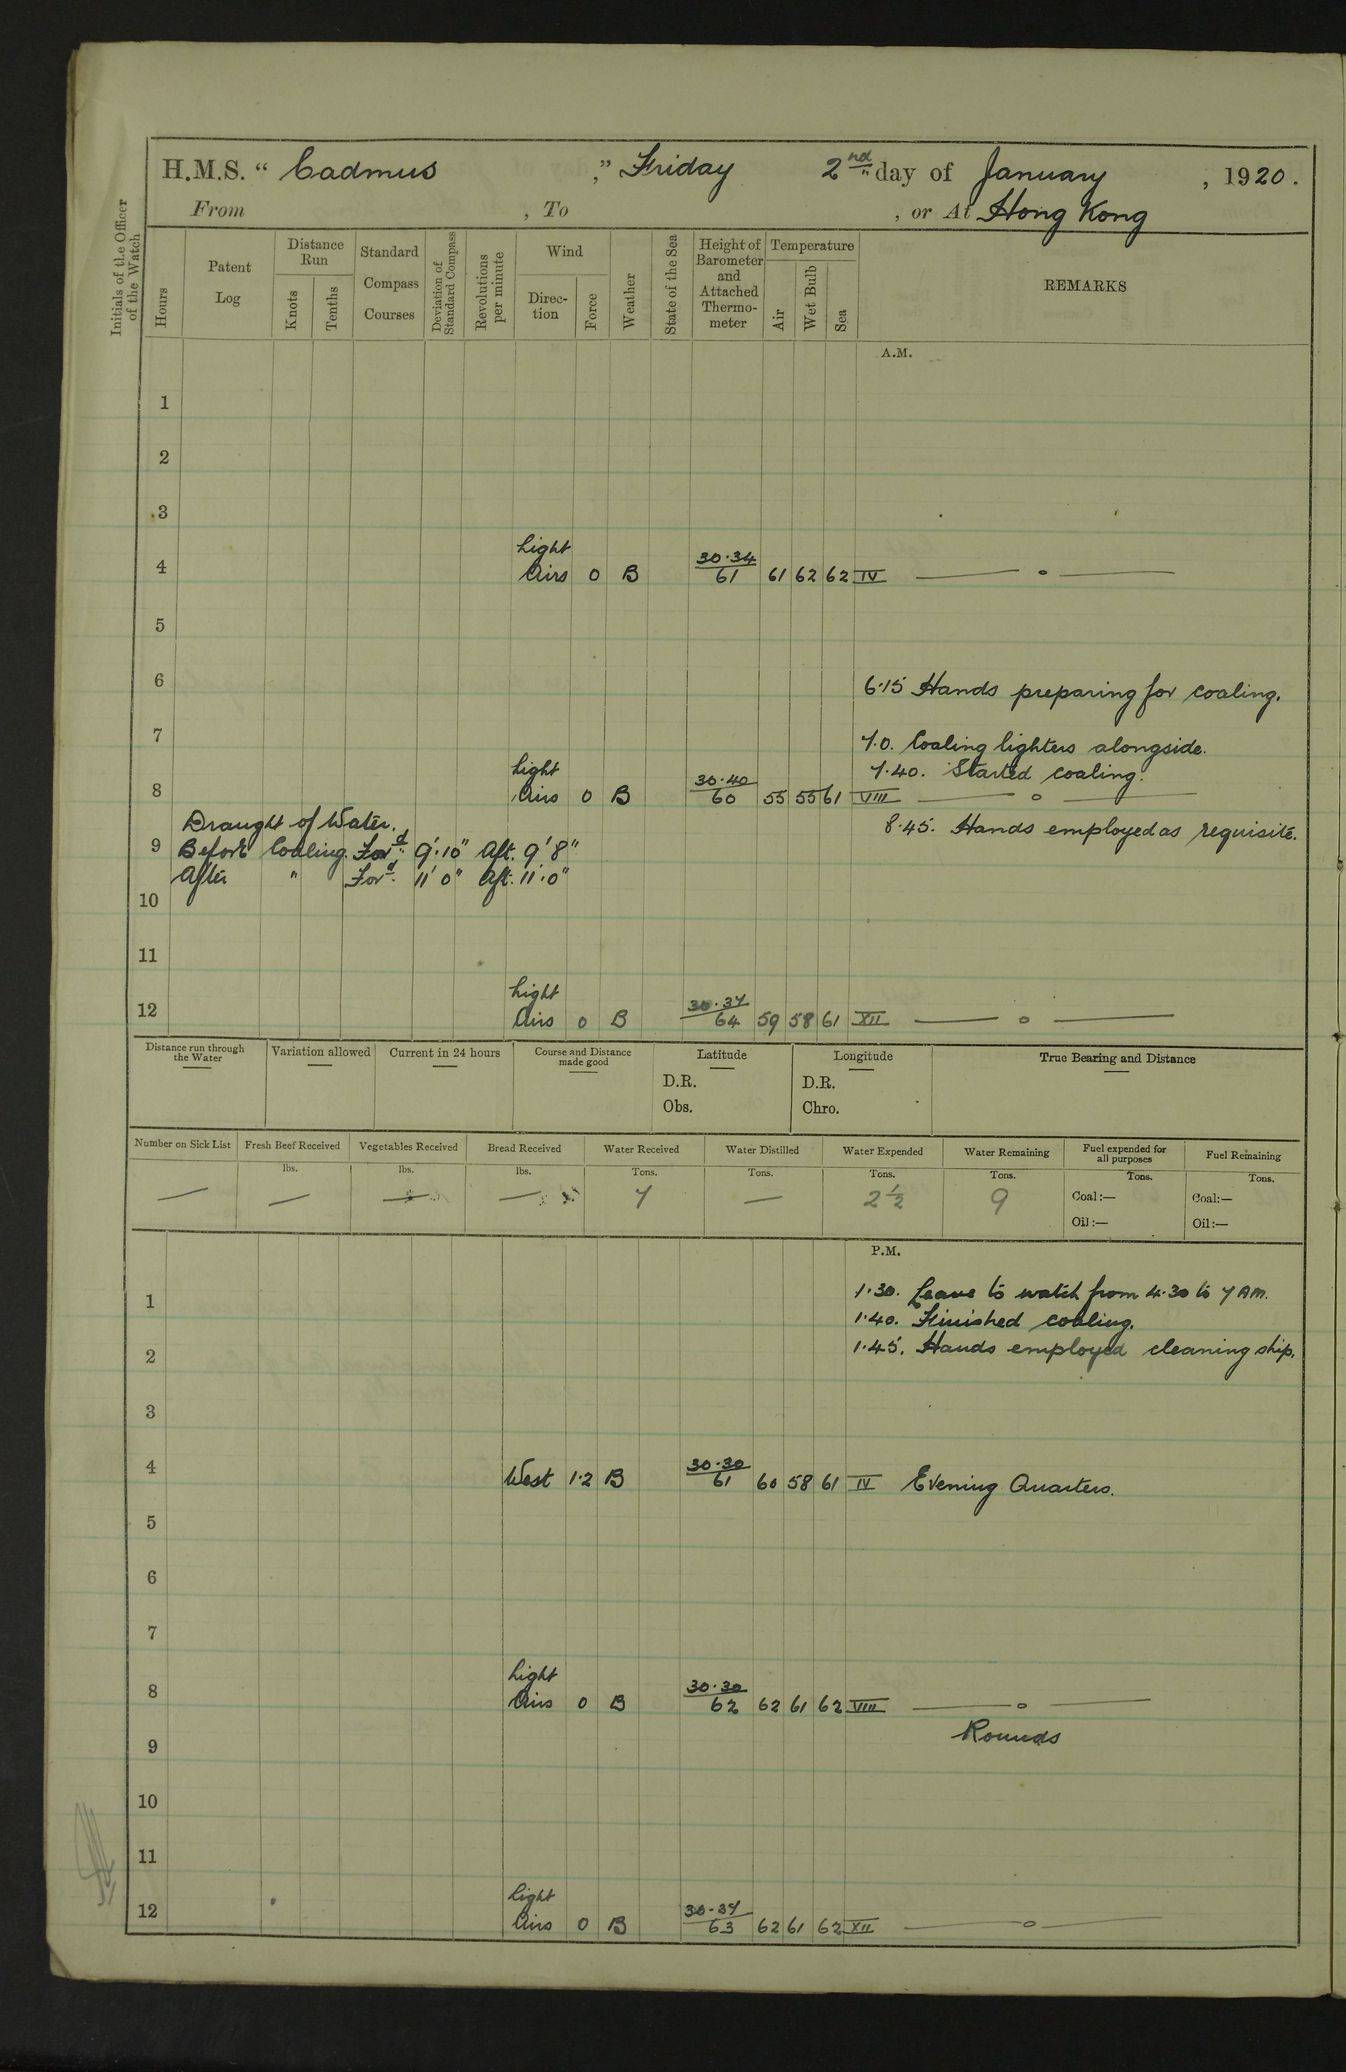 H.M.S. “ Cadmus ,” Friday 2nd day of January , 1920.
From , To , or At Hong Kong
Initials of the Officer of the Watch
Hours
Patent Log
Distance Run
Knots
Tenths
Standard Compass Courses
Deviation of Standard Compass
Revolutions per minute
Wind
Direc-tion
Force
Weather
State of the Sea
Height of Barometer and Attached Thermo-meter
Temperature
Air
Wet Bulb
Sea
REMARKS
A.M.
1
2
3
Light
30.34
4 Airs 0 B 61 61 62 62 IV — o —
5
6 6.15 Hands preparing for coaling.
7 7.0. Coaling lighters alongside.
Light 7.40. Started coaling.
30.40
8 Airs 0 B 60 55 55 61 VIII — o —
Draught of Water. 8.45. Hands employed as requisite.
9 Before Coaling. Ford. 9'.10" Aft. 9'8"
After " Ford. 11'0" Aft. 11'.0"
10
11
Light
30.37
12 Airs 0 B 64 59 58 61 XII — o —
Distance run through the Water
Variation allowed
Current in 24 hours
Course and Distance made good
Latitude
D.R.
Obs.
Longitude
D.R.
Chro.
True Bearing and Distance
Number on Sick List Fresh Beef Received Vegetables Received Bread Received Water Received Water Distilled Water Expended Water Remaining Fuel expended for all purposes Fuel Remaining
lbs. lbs. lbs. Tons. Tons. Tons. Tons. Tons. Tons.
— — — — 7 — 2½ 9 Coal:— Coal:—
Oil:— Oil:—
P.M.
1.30. Leave to watch from 4.30 to 7 AM.
1 1.40. Finished coaling.
2 1.45. Hands employed cleaning ship.
3
30.30
4 West 1.2 B 61 60 58 61 IV Evening Quarters.
5
6
7
Light
30.30
8 Airs 0 B 62 62 61 62 VIII — o —
9 Rounds
10
11
Light
30.37
12 Airs 0 B 63 62 61 62 XII — o —